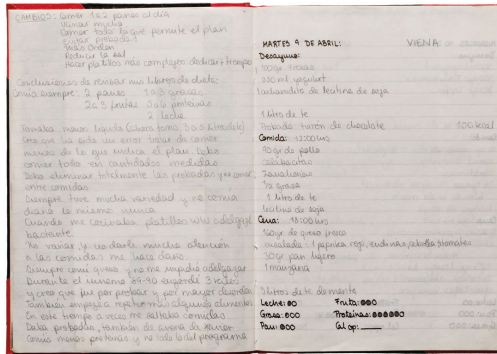 CAMBIOS: Comer 1 a 2 panes al día
Variar mucho
Comer todo lo que permite el plan
Evitar probadas
Más orden
Reducir la sal
Hacer platillos más complejos dedicar + tiempo
Conclusiones de revisar mis libros de dieta:
Comía siempre: 2 panes 1 a 3 grasas
2 a 3 frutas 5 a 6 proteínas
2 leche
Tomaba menos líquido (Ahora tomo 3 a 5 litros diete)
Creo que ha sido un error tratar de comer
menos de lo que indica el plan. Debo
comer todo en cantidades medidas
Debo eliminar totalmente las probadas y no comer
entre comidas
Siempre tuve mucha variedad y no comía
diario lo mismo nunca
Cuando me cocinaba platillos WW adelgacé
bastante.
No variar y no darle mucha atención
a las comidas me hace daño.
Siempre comí queso y no me impidió adelgazar
Durante el invierno 89-90 engordé 3 kilos
y creo que fue por probar y por mayor desorden
También empezé a repetir más algunos alimentos
En este tiempo a veces me saltaba comidas
Daba probadas, también de avena de
Comía menos proteínas y no todo lo del programa
MARTES 9 DE ABRIL: VIENA
Desayuno:
100 gr. fresas
250 ml yoghurt
1 cdita de lecitina de soja
1 litro de te
Probada turrón de chocolate 100 kcal
Comida: 12:00 hrs
90 gr de pollo
calabacitas
zanahorias
1/2 grasa
1 litro de te
lecitina de soja
Cena: 18:00 hrs
160 gr de queso fresco
ensalada: 1 paprika roja, endivias, cebolla y tomates
30 gr pan ligero
1 manzana
3 litros de te de menta
Leche: 00 Fruta: 000
Grasa: 000 Proteínas: 000000
Pan: 000 Cal op: ____